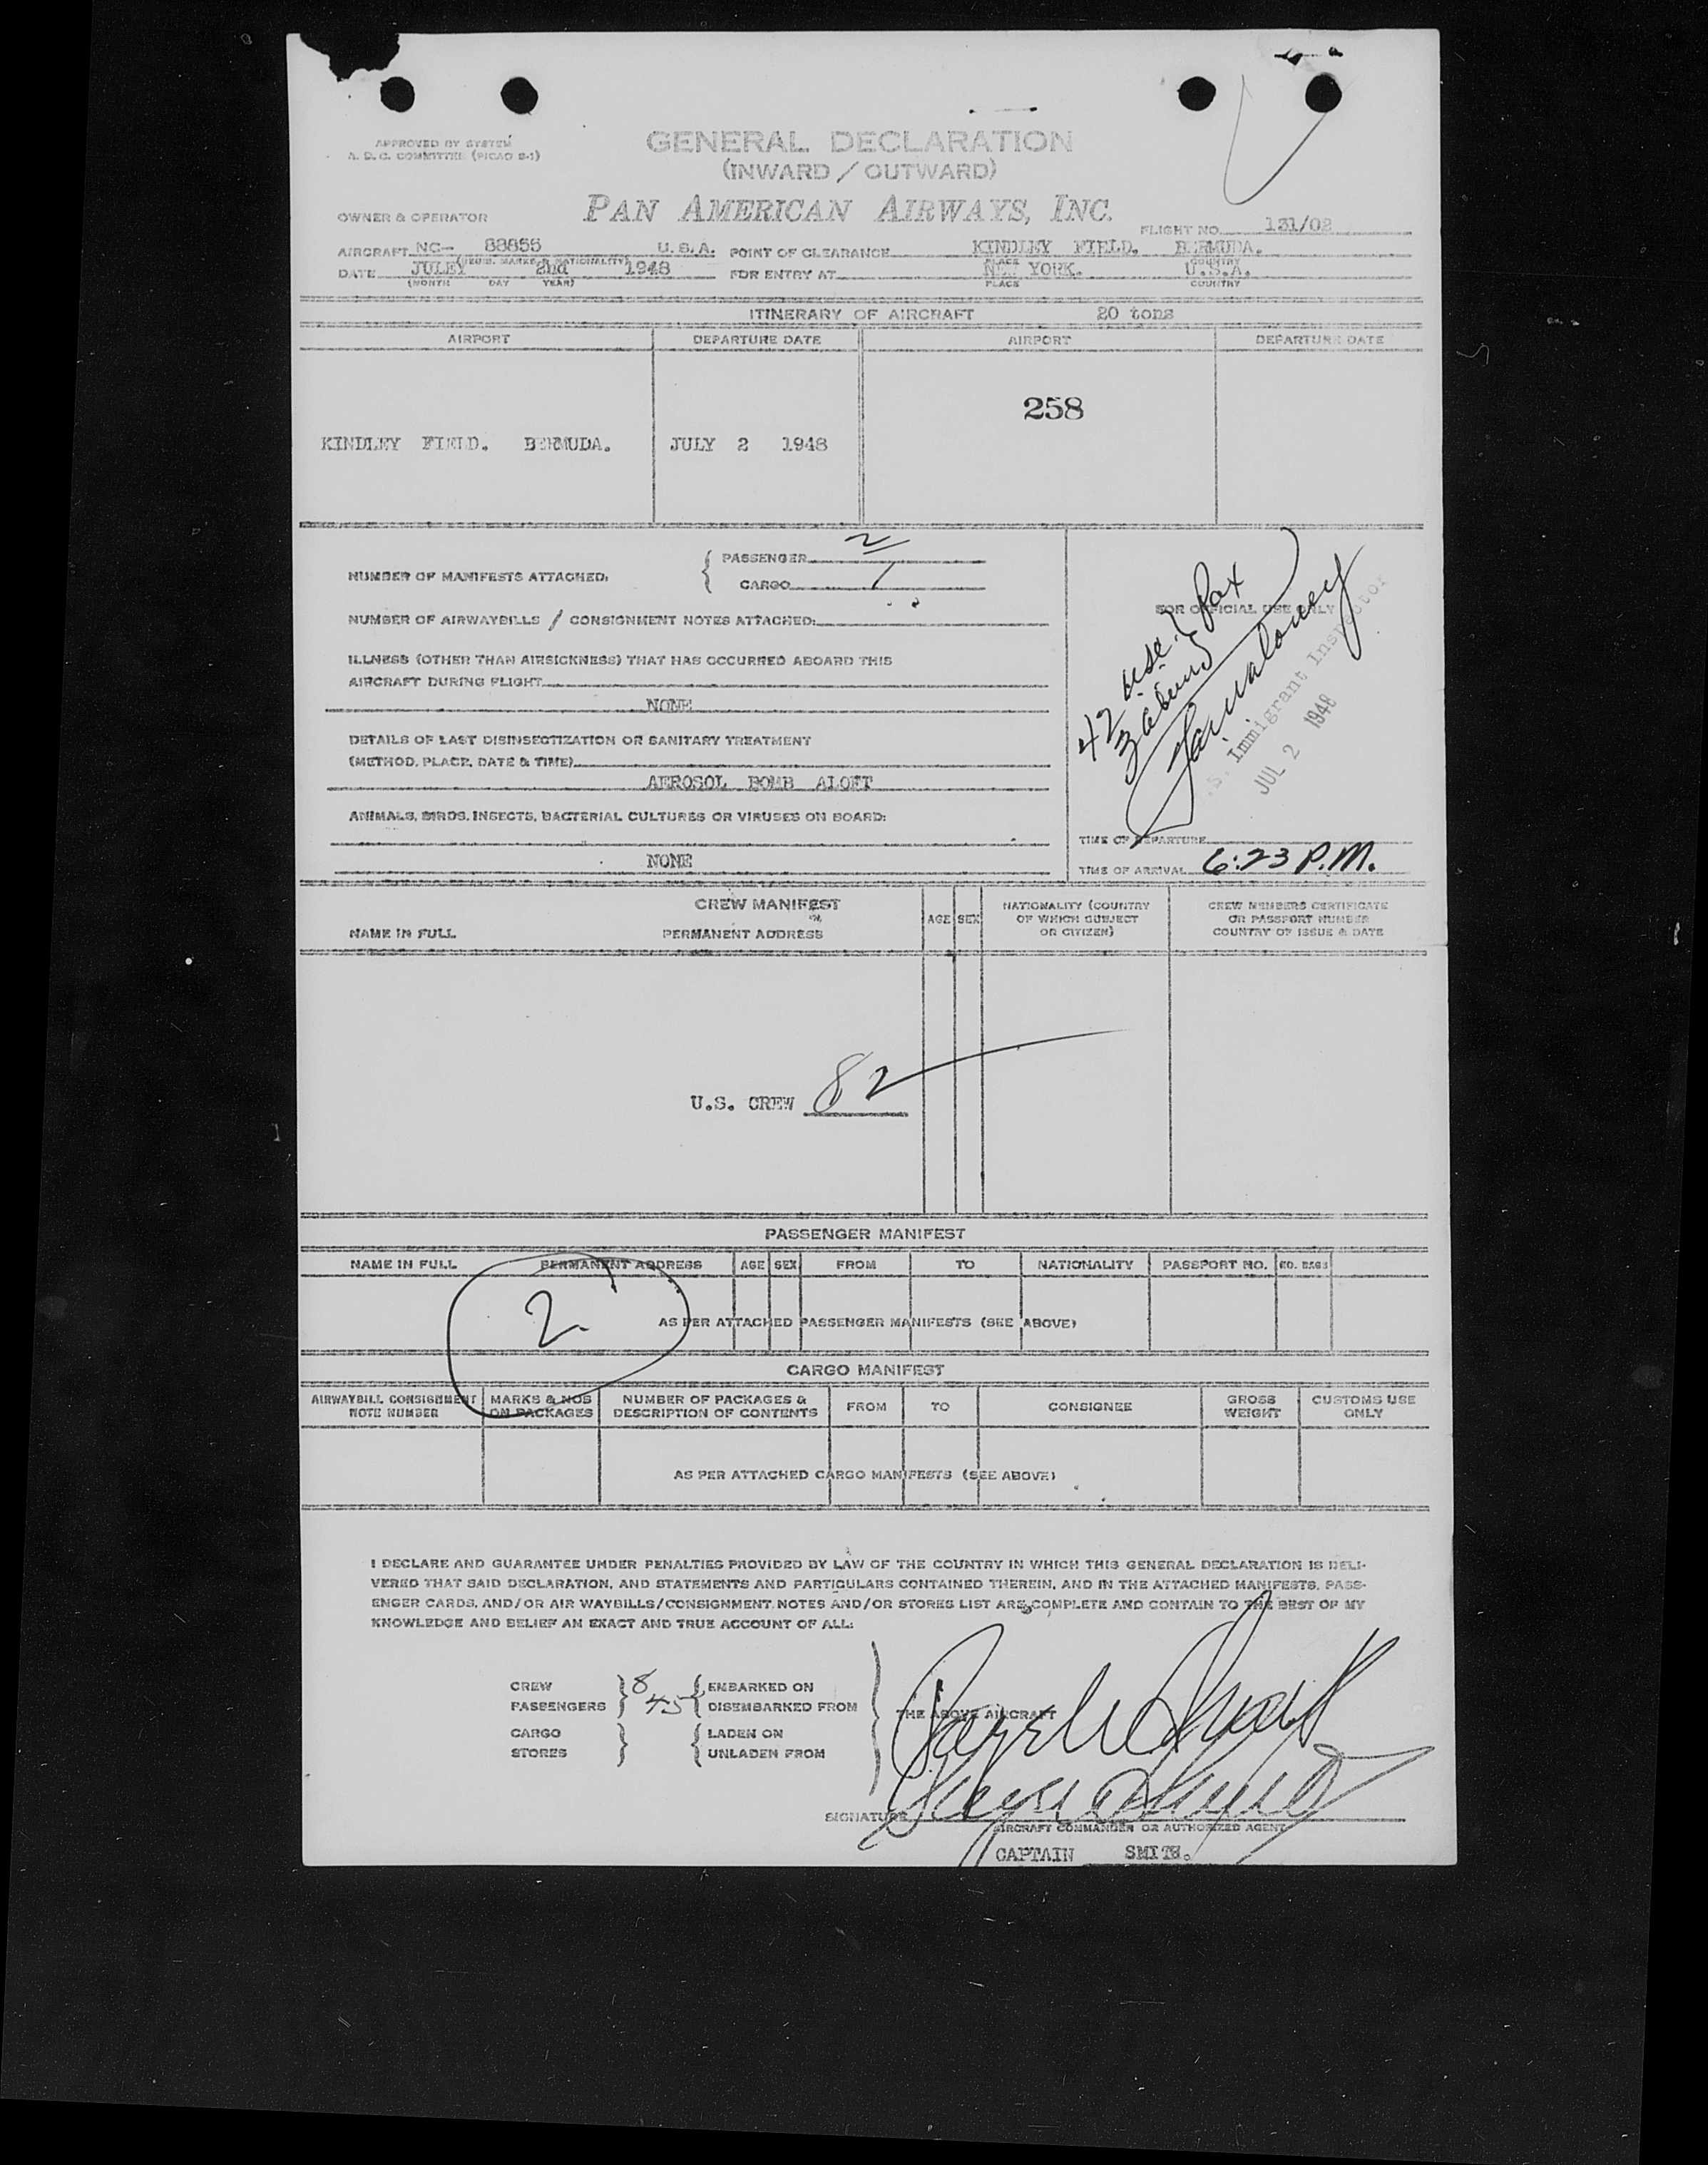 APPROVED BY SYSTEM
A. D. C. COMMITTEE (PICAO S-1)
GENERAL DECLARATION
(INWARD / OUTWARD)
PAN AMERICAN AIRWAYS, INC.
OWNER & OPERATOR
FLIGHT NO. 131/02
AIRCRAFT NC- 88855 U.S.A. POINT OF CLEARANCE KINDLEY FIELD. BERMUDA.
(REGIS. MARKS & NATIONALITY) PLACE COUNTRY
DATE JULEY 2nd 1948 FOR ENTRY AT NEW YORK. U.S.A.
(MONTH DAY YEAR) PLACE COUNTRY
ITINERARY OF AIRCRAFT 20 tons
AIRPORT DEPARTURE DATE AIRPORT DEPARTURE DATE
258
KINDLEY FIELD. BERMUDA. JULY 2 1948
NUMBER OF MANIFESTS ATTACHED: { PASSENGER 2
CARGO 1
NUMBER OF AIRWAYBILLS / CONSIGNMENT NOTES ATTACHED:
ILLNESS (OTHER THAN AIRSICKNESS) THAT HAS OCCURRED ABOARD THIS
AIRCRAFT DURING FLIGHT
NONE
DETAILS OF LAST DISINSECTIZATION OR SANITARY TREATMENT
(METHOD, PLACE, DATE & TIME)
AEROSOL BOMB ALOFT
ANIMALS, BIRDS, INSECTS, BACTERIAL CULTURES OR VIRUSES ON BOARD:
NONE
FOR OFFICIAL USE ONLY
42 usc
3 aliens
} pax
S. Immigrant Inspector
JUL 2 1948
TIME OF DEPARTURE
TIME OF ARRIVAL 6:23 P.M.
CREW MANIFEST
NAME IN FULL PERMANENT ADDRESS AGE SEX NATIONALITY (COUNTRY OF WHICH SUBJECT OR CITIZEN) CREW MEMBERS CERTIFICATE OR PASSPORT NUMBER COUNTRY OF ISSUE & DATE
U.S. CREW 8
PASSENGER MANIFEST
NAME IN FULL PERMANENT ADDRESS AGE SEX FROM TO NATIONALITY PASSPORT NO. NO. BAGS
2
AS PER ATTACHED PASSENGER MANIFESTS (SEE ABOVE)
CARGO MANIFEST
AIRWAYBILL CONSIGNMENT NOTE NUMBER MARKS & NOS ON PACKAGES NUMBER OF PACKAGES & DESCRIPTION OF CONTENTS FROM TO CONSIGNEE GROSS WEIGHT CUSTOMS USE ONLY
AS PER ATTACHED CARGO MANIFESTS (SEE ABOVE)
I DECLARE AND GUARANTEE UNDER PENALTIES PROVIDED BY LAW OF THE COUNTRY IN WHICH THIS GENERAL DECLARATION IS DELI-
VERED THAT SAID DECLARATION, AND STATEMENTS AND PARTICULARS CONTAINED THEREIN, AND IN THE ATTACHED MANIFESTS, PASS-
ENGER CARDS, AND/OR AIR WAYBILLS/CONSIGNMENT NOTES AND/OR STORES LIST ARE COMPLETE AND CONTAIN TO THE BEST OF MY
KNOWLEDGE AND BELIEF AN EXACT AND TRUE ACCOUNT OF ALL:
CREW } 8 { EMBARKED ON
PASSENGERS } 45 { DISEMBARKED FROM
THE ABOVE AIRCRAFT
CARGO } { LADEN ON
STORES } { UNLADEN FROM
SIGNATURE
AIRCRAFT COMMANDER OR AUTHORIZED AGENT
CAPTAIN SMITH.